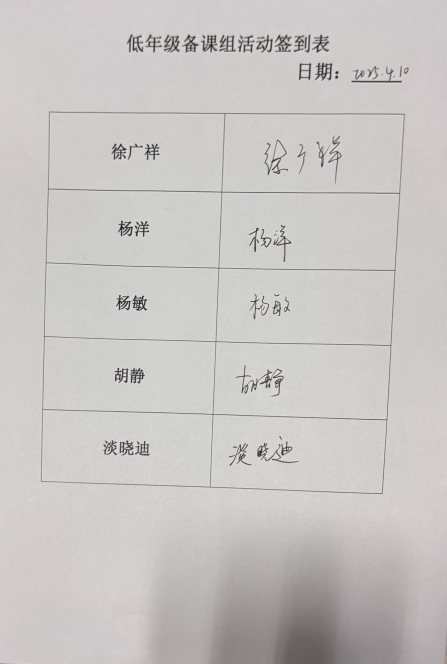 低年级备课组活动签到表
日期：2025.4.10
徐广祥 徐广祥
杨洋 杨洋
杨敏 杨敏
胡静 胡静
淡晓迪 淡晓迪